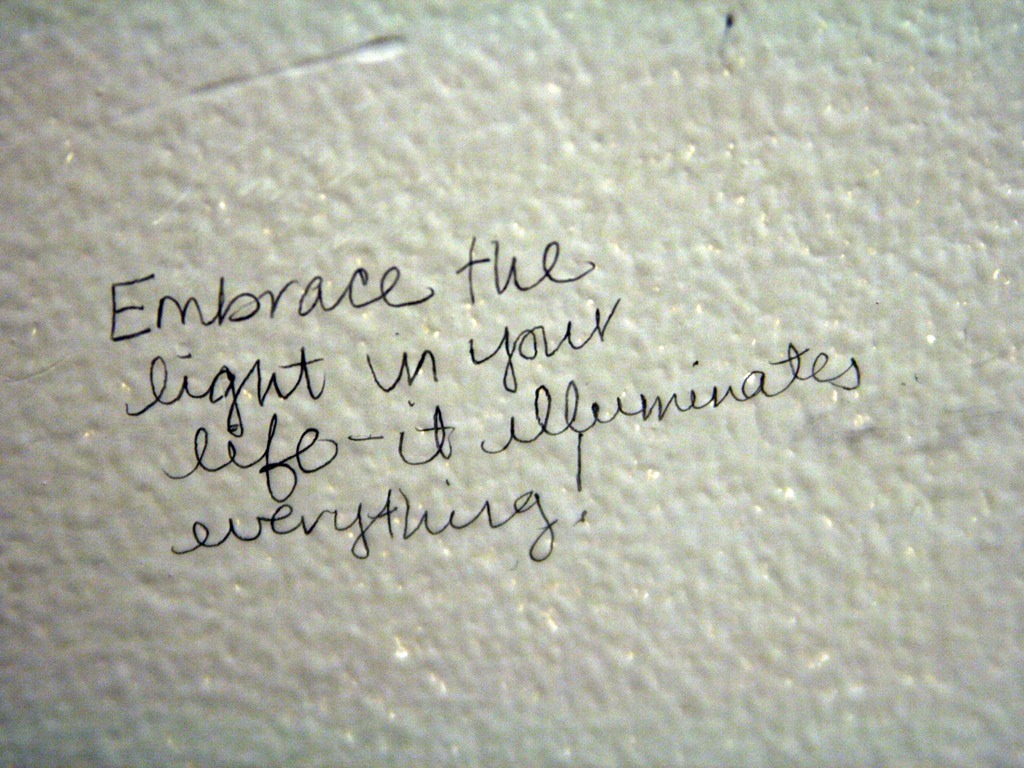 Embrace the
light in your
life - it illuminates
everything!